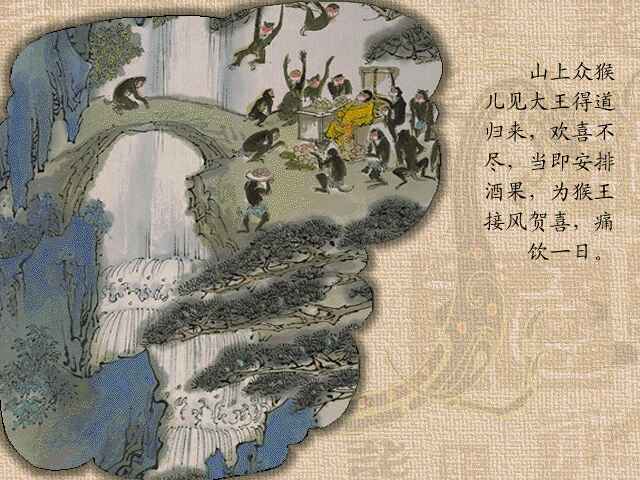 山上众猴
儿见大王得道
归来，欢喜不
尽，当即安排
酒果，为猴王
接风贺喜，痛
饮一日。